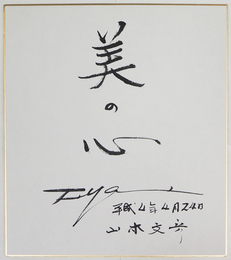 美
の
心
平成4年4月24日
山本文彦